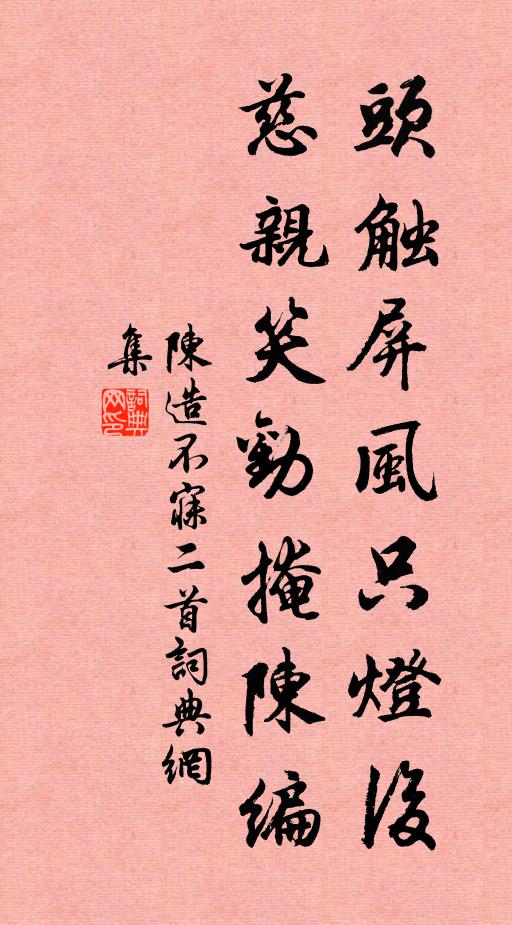 頭触屏風只燈後
慈親笑勸掩陳編
陳造不寐二首詞典網
集
詞典網印